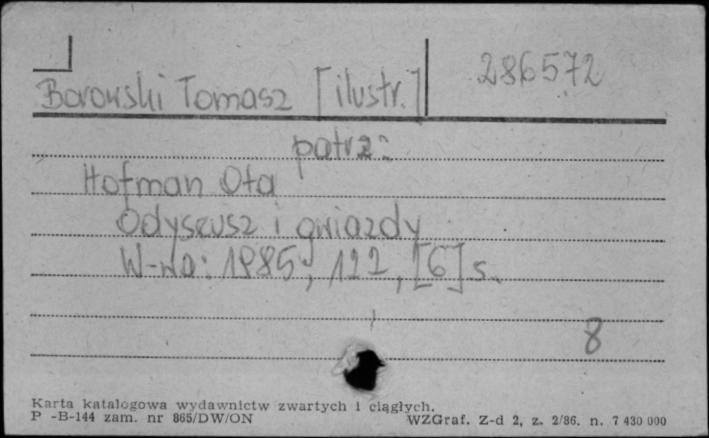 Borowski Tomasz [ilustr.] 286572
patrz:
Hofman Ota
Odyseusz i gwiazdy
W-wa: 1985; 122, [6] s.
8
Karta katalogowa wydawnictw zwartych i ciągłych.
P -B-144 zam. nr 865/DW/ON WZGraf. Z-d 2, z. 2/86. n. 7 430 000